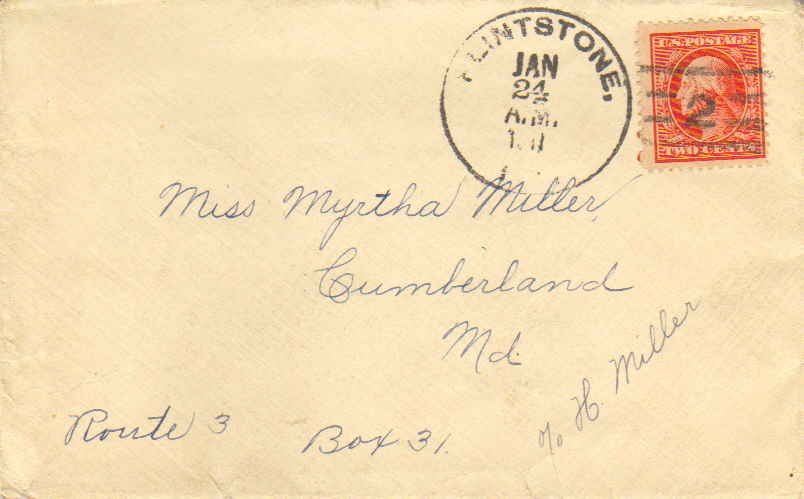 FLINTSTONE,
JAN
24
A.M.
U.S. POSTAGE
2
TWO CENTS
Miss Myrtha Miller
Cumberland
Md.
Route 3 Box 31.
c/o H. Miller